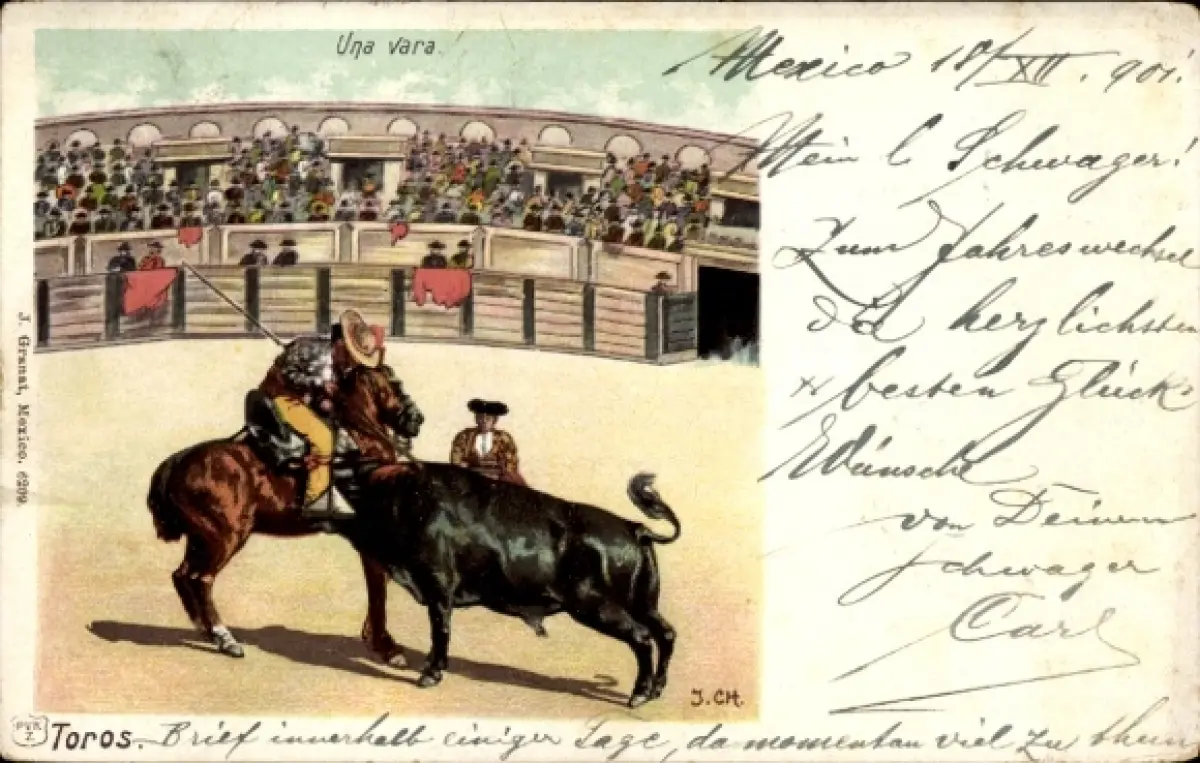 Una vara.
Mexico 18/XII. 901.
Mein l Schwager!
Zum Jahreswechsel
die herzlichsten
& besten Glück-
Wünsche
von Deinem
Schwager
Carl
J. Granat, Mexico. 6209.
J. CH.
PVK
Z
Toros. Brief innerhalb einiger Tage, da momentan viel zu thun